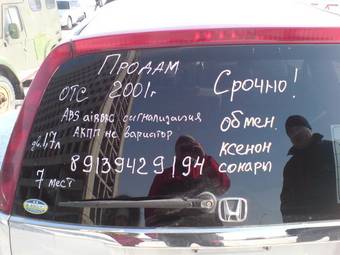 ПРОДАМ
ОТС 2001г
ABS airBAG сигнализация
дв. 1,7л АКПП не вариатор
89139429194
7 мест
Срочно!
обмен.
ксенон
сокарп